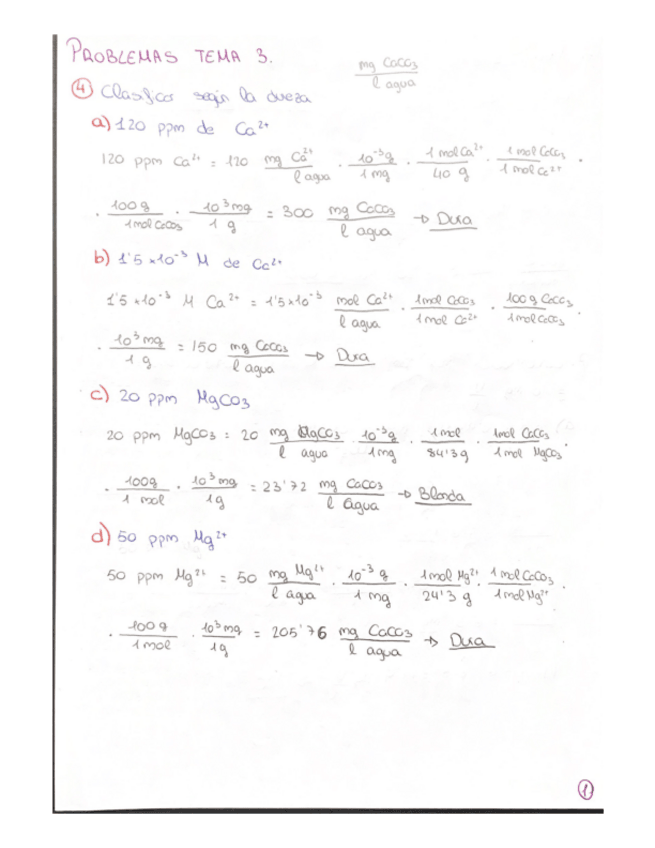 PROBLEMAS TEMA 3.
mg CaCO3 / l agua
4 Clasificar según la dureza
a) 120 ppm de Ca2+
120 ppm Ca2+ = 120 mg Ca2+ / l agua · 10-3 g / 1 mg · 1 mol Ca2+ / 40 g · 1 mol CaCO3 / 1 mol Ca2+ ·
· 100 g / 1 mol CaCO3 · 10 3 mg / 1 g = 300 mg CaCO3 / l agua → Dura
b) 1'5 x10-3 M de Ca2+
1'5 x10-3 M Ca2+ = 1'5 x10-3 mol Ca2+ / l agua · 1 mol CaCO3 / 1 mol Ca2+ · 100 g CaCO3 / 1 mol CaCO3 ·
· 10 3 mg / 1 g = 150 mg CaCO3 / l agua → Dura
c) 20 ppm MgCO3
20 ppm MgCO3 = 20 mg MgCO3 / l agua · 10-3 g / 1 mg · 1 mol / 84'3 g · 1 mol CaCO3 / 1 mol MgCO3 ·
· 100 g / 1 mol · 10 3 mg / 1 g = 23'72 mg CaCO3 / l agua → Blanda
d) 50 ppm Mg2+
50 ppm Mg2+ = 50 mg Mg2+ / l agua · 10-3 g / 1 mg · 1 mol Mg2+ / 24'3 g · 1 mol CaCO3 / 1 mol Mg2+ ·
· 100 g / 1 mol · 10 3 mg / 1 g = 205'76 mg CaCO3 / l agua → Dura
1